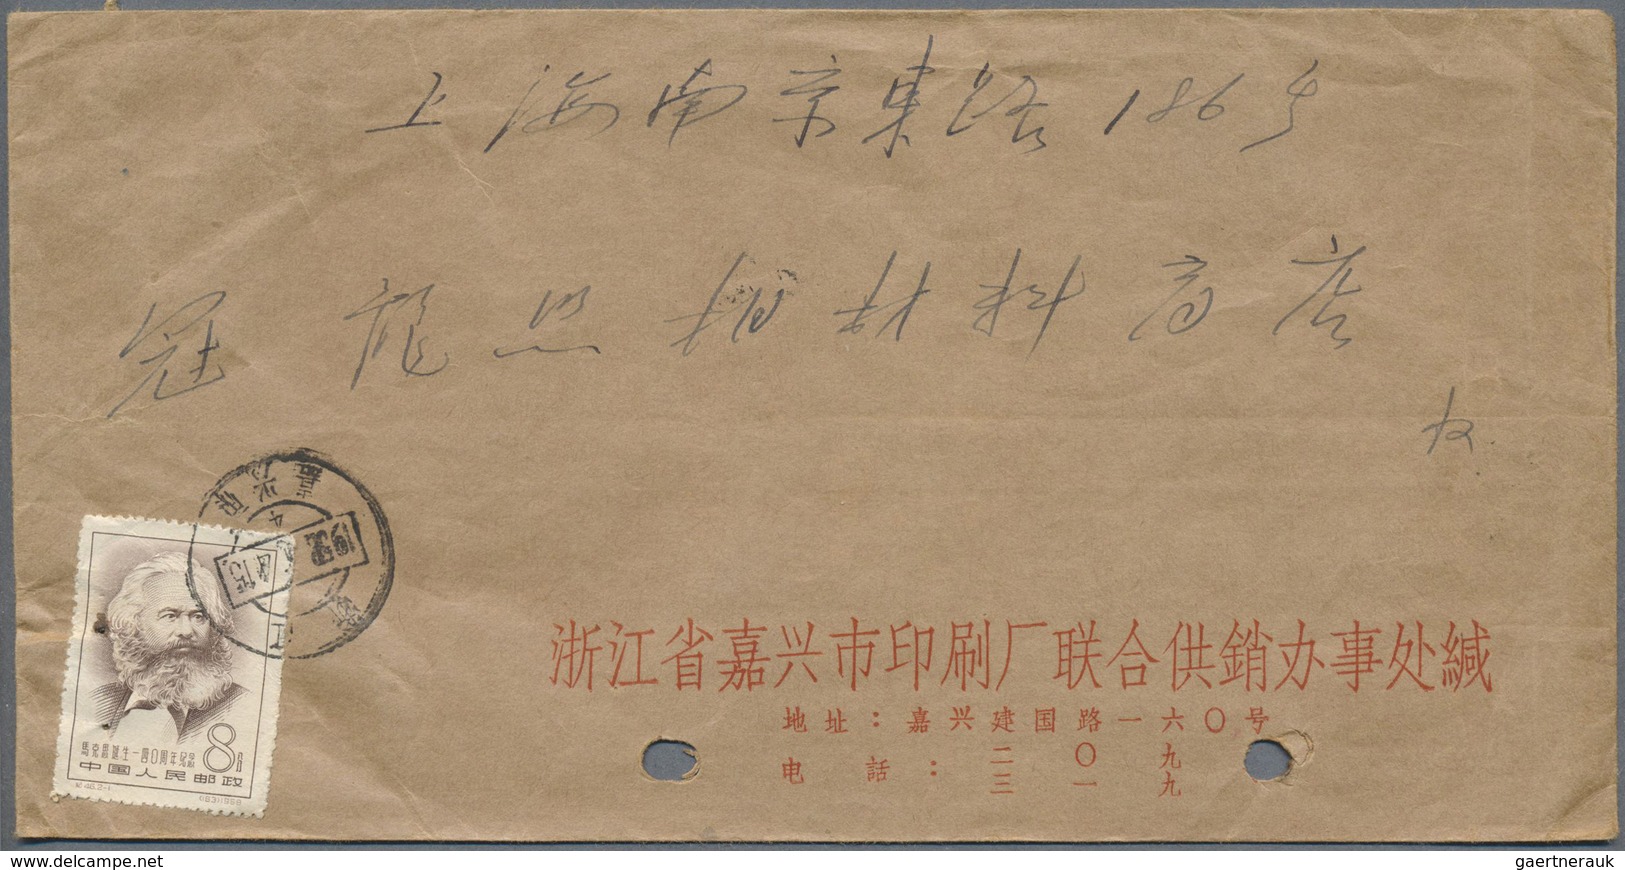 上海南京東路186号
冠龍照相材料商店
收
浙江
嘉兴
馬克思誕生一四〇周年紀念
8分
中国人民邮政
紀46.2-1
(183)1958
浙江省嘉兴市印刷厂联合供銷办事处緘
地址：嘉兴建国路一六〇号
电話：二〇九
三一九
www.delcampe.net
gaertnerauk